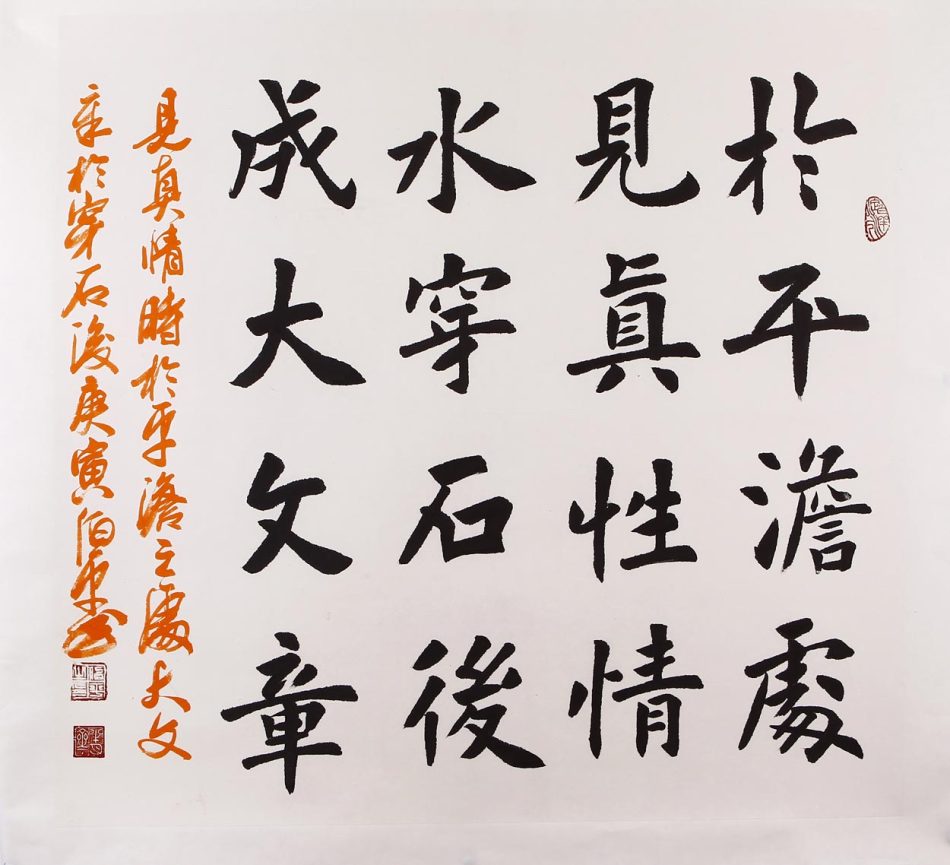 於平澹處
見真性情
水穿石後
成大文章
見真情時於平澹之處大文
章於穿石後庚寅伯書